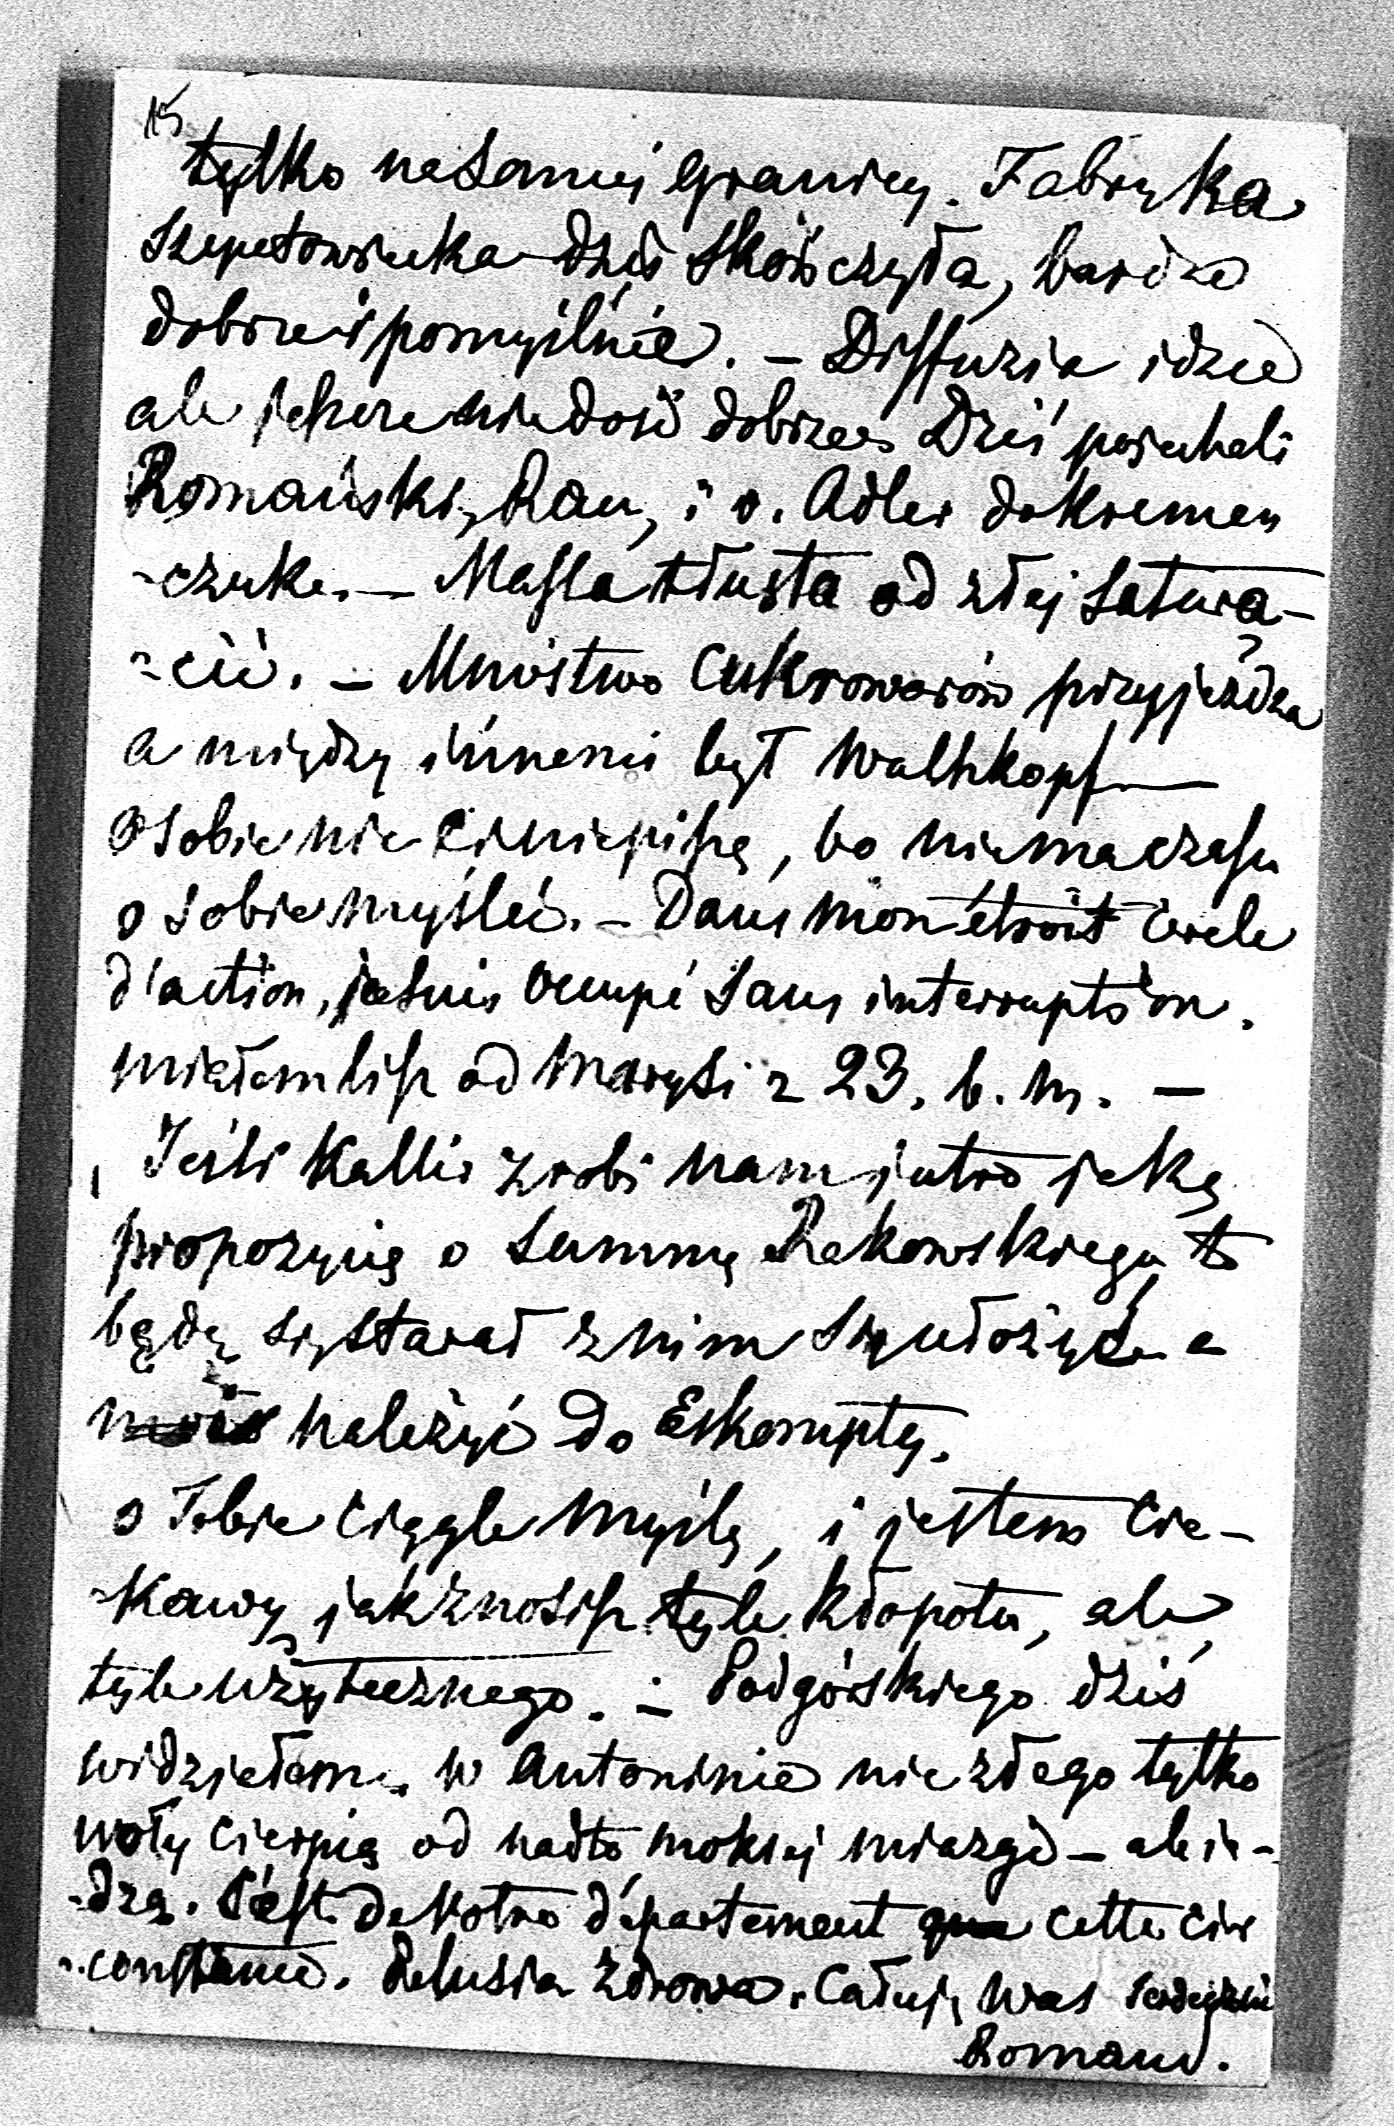 15
tylko na samej granicy. Fabryka
Szepetowiecka dziś skończyła, bardzo
dobrze i pomyślnie. – Diffuzia idzie
ale jeszcze nie dość dobrze. Dziś pojechali
Romański, Rau, i v. Adler do Kremen
-czuka. – Massa tłusta od złej satura-
-cii. – Mnóstwo Cukrowarów przyjeżdża
a między innemi był Walhkopf –
o sobie nic Ci niepiszę, bo niema czasu
o sobie myśleć. – Dans mon étroit cercle
d'action, je suis occupé sans interruption.
miałem list od Marysi z 23. b. m. –
Jeśli Kaller zrobi nam jutro jaką
propozycię o summę Rakowskiego to
będę się starał z nim się ułożyć a
należyć do Eskompty.
o Tobie ciągle myślę, i jestem cie-
-kawy jak znosisz tyle kłopotu, ale
tyle użytecznego. – Podgórskiego dziś
widziałem. w Antoninie nic złego tylko
woły cierpią od nadto mokrej miazgi – ale je-
-dzą. C'est de votre département cette cir
-constance. Relusia zdrowa. Całuję Was serdecznie
Roman.